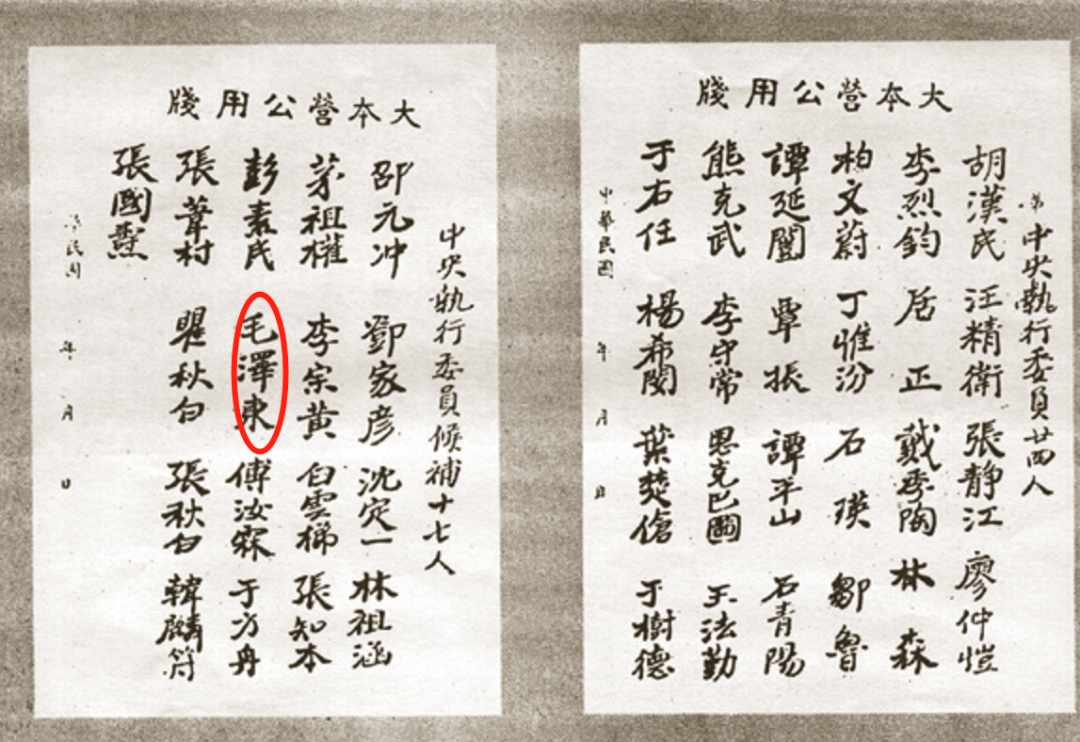 大本營公用牋
中央執行委員廿四人
胡漢民 汪精衛 張靜江 廖仲愷
李烈鈞 居正 戴季陶 林森
柏文蔚 丁惟汾 石瑛 鄒魯
譚延闓 覃振 譚平山 石青陽
熊克武 李守常 恩克巴圖 王法勤
于右任 楊希閔 葉楚傖 于樹德
中華民國 年 月 日
大本營公用牋
中央執行委員候補十七人
邵元冲 鄧家彦 沈定一 林祖涵
茅祖權 李宗黄 白雲梯 張知本
彭素民 毛澤東 傅汝霖 于方舟
張葦村 瞿秋白 張秋白 韓麟符
張國燾
民國 年 月 日